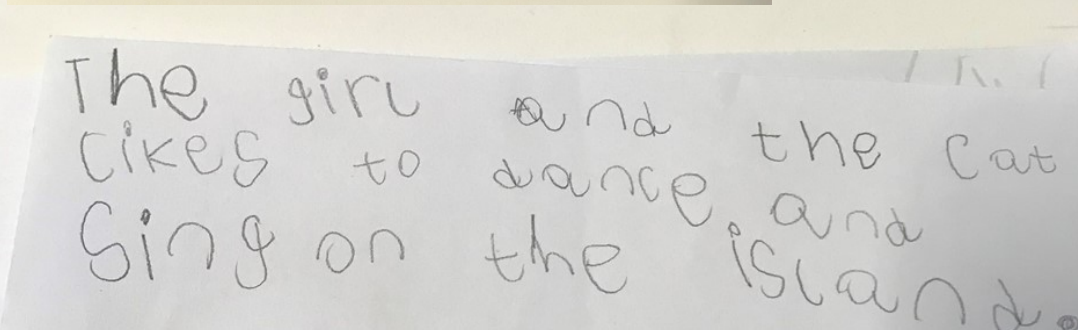 The girl and the cat
likes to dance and
Sing on the island.